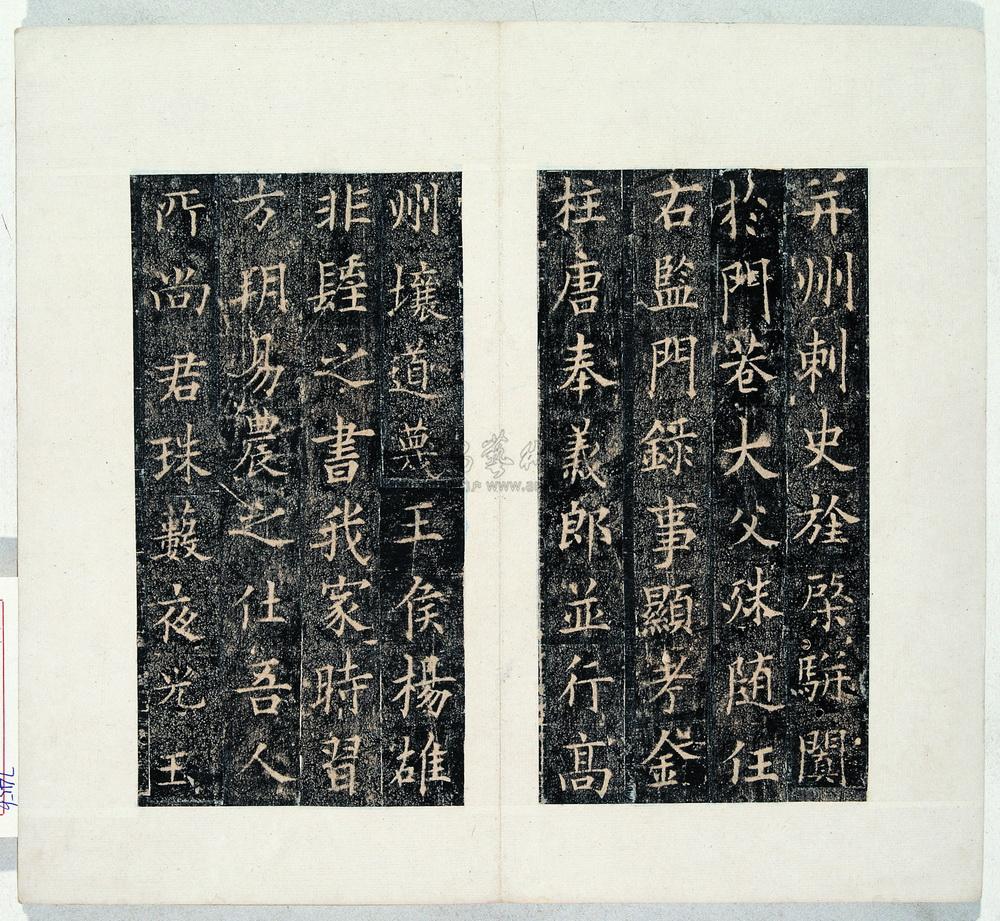 并州刺史旌棨駢闐
於門巷大父殊随任
右監門錄事顯考釜
柱唐奉義郎並行高
州壤道蔑王侯楊雄
非之書我家時習
方朔易農之仕吾人
所尚君珠藪夜光玉